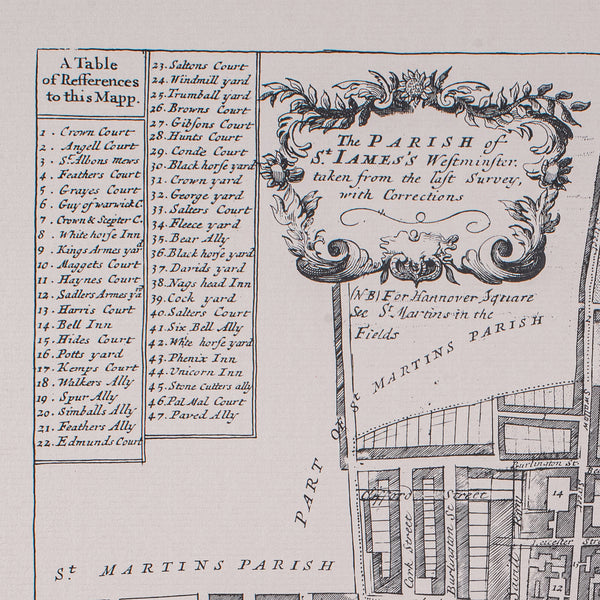 A Table
of Refferences
to this Mapp.
1 . Crown Court
2 . Angell Court
3 . St. Albons mews
4 . Feathers Court
5 . Grayes Court
6 . Guy of warwick C.
7 . Crown & Scepter C.
8 . White horse Inn
9 . Kings Armes yard
10 . Maggets Court
11 . Haynes Court
12 . Sadlers Armes yd
13 . Harris Court
14 . Bell Inn
15 . Hides Court
16 . Potts yard
17 . Kemps Court
18 . Walkers Ally
19 . Spur Ally
20 . Simballs Ally
21 . Feathers Ally
22 . Edmunds Court
23. Saltons Court
24. Windmill yard
25. Trumball yard
26. Browns Court
27. Gibsons Court
28. Hunts Court
29. Conde Court
30. Black horse yard
31. Crown yard
32. George yard
33. Salters Court
34. Fleece yard
35. Bear Ally
36. Black horse yard
37. Davids yard
38. Nags head Inn
39. Cock yard
40. Salters Court
41. Six Bell Ally
42. White horse yard
43. Phenix Inn
44. Unicorn Inn
45. Stone cutters ally
46. Pal Mal Court
47. Paved Ally
The PARISH of
St. IAMES's Westminster.
taken from the last Survey,
with Corrections
(N.B) For Hannover Square
See St. Martins in the
Fields
PART OF St MARTINS PARISH
St. MARTINS PARISH
Burlington St.
Clifford Street
Cork Street
Burlington St
Leicester Stre
14
15